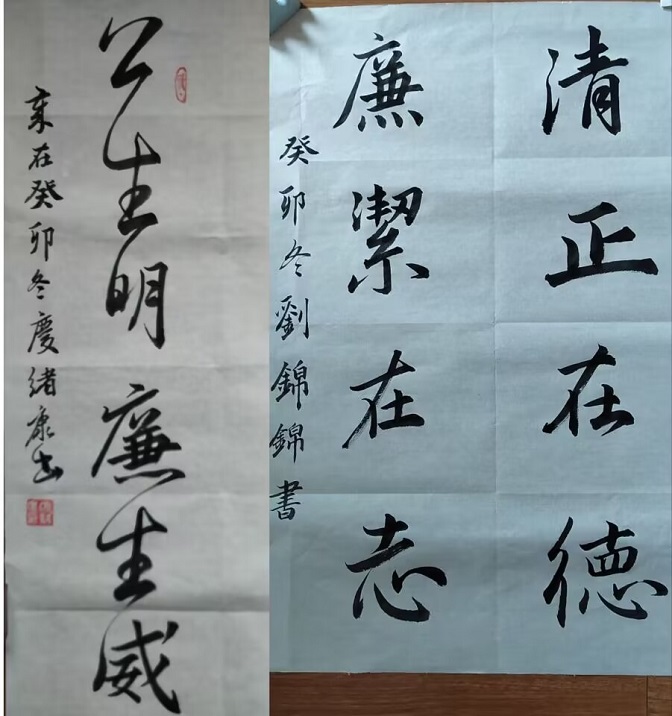 公生明廉生威
癸卯冬慶緒康书
清正在德
廉潔在志
癸卯冬劉錦錦書